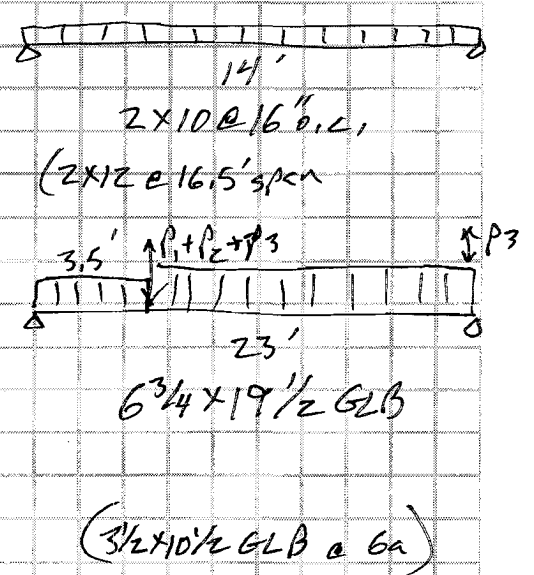 14'
2X10 @ 16" o.c.
(2X12 @ 16.5' span
3.5'
P1+P2+P3
P3
23'
6 3/4 X 19 1/2 GLB
(3 1/2 X 10 1/2 GLB @ 6a)